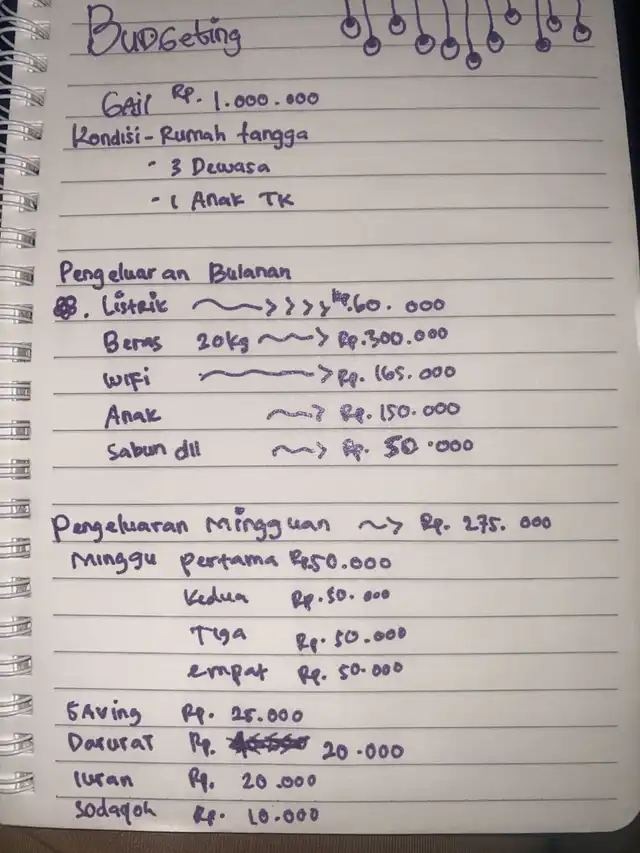 Budgeting
Gaji Rp. 1.000.000
Kondisi - Rumah tangga
· 3 Dewasa
· 1 Anak TK
Pengeluaran Bulanan
Listrik Rp.60.000
Beras 20kg Rp.300.000
Wifi Rp. 165.000
Anak Rp. 150.000
Sabun dll Rp. 50.000
Pengeluaran Mingguan Rp. 275.000
Minggu pertama Rp50.000
Kedua Rp.50.000
Tiga Rp.50.000
empat Rp. 50.000
SAVing Rp. 25.000
Darurat Rp. 20.000
Iuran Rp. 20.000
Sodaqoh Rp. 10.000